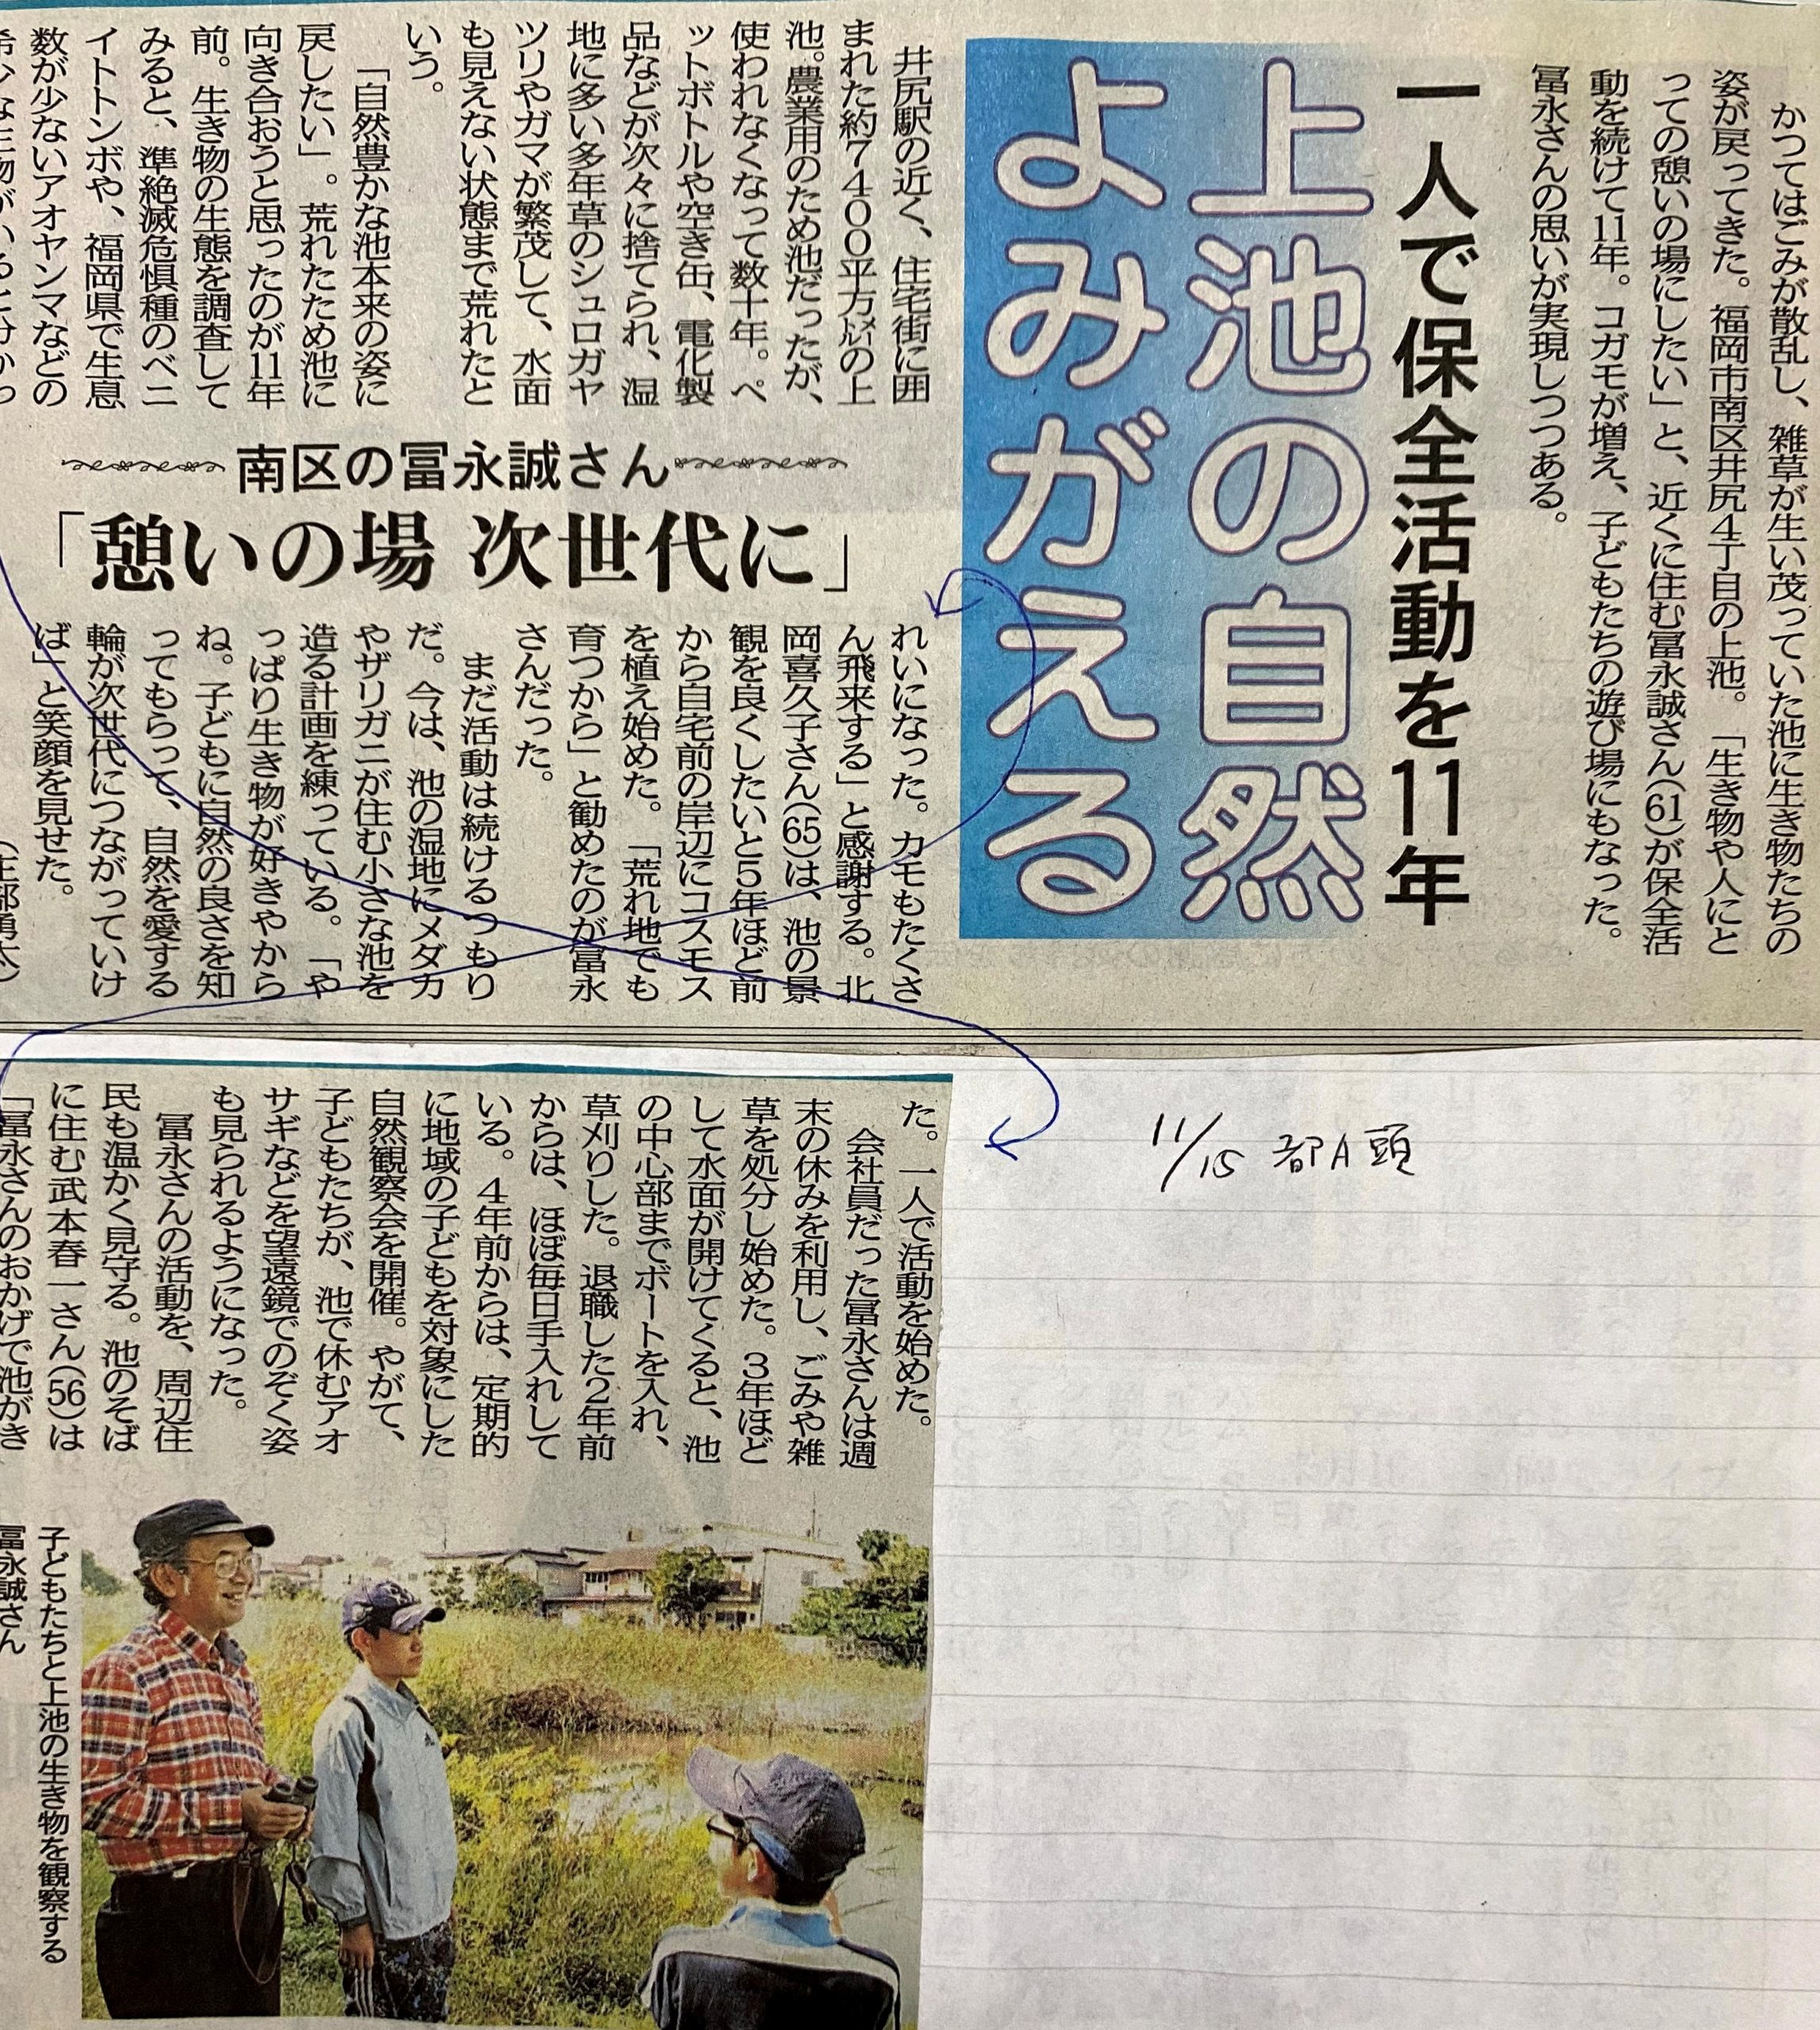 一人で保全活動を11年
上池の自然
よみがえる
かつてはごみが散乱し、雑草が生い茂っていた池に生き物たちの
姿が戻ってきた。福岡市南区井尻4丁目の上池。「生き物や人にと
っての憩いの場にしたい」と、近くに住む冨永誠さん(61)が保全活
動を続けて11年。コガモが増え、子どもたちの遊び場にもなった。
冨永さんの思いが実現しつつある。
井尻駅の近く、住宅街に囲
まれた約7400平方㍍の上
池。農業用のため池だったが、
使われなくなって数十年。ペ
ットボトルや空き缶、電化製
品などが次々に捨てられ、湿
地に多い多年草のシュロガヤ
ツリやガマが繁茂して、水面
も見えない状態まで荒れたと
いう。
「自然豊かな池本来の姿に
戻したい」。荒れたため池に
向き合おうと思ったのが11年
前。生き物の生態を調査して
みると、準絶滅危惧種のベニ
イトトンボや、福岡県で生息
数が少ないアオヤンマなどの
希少な生物がいると分かっ
た。一人で活動を始めた。
会社員だった冨永さんは週
末の休みを利用し、ごみや雑
草を処分し始めた。3年ほど
して水面が開けてくると、池
の中心部までボートを入れ、
草刈りした。退職した2年前
からは、ほぼ毎日手入れして
いる。4年前からは、定期的
に地域の子どもを対象にした
自然観察会を開催。やがて、
子どもたちが、池で休むアオ
サギなどを望遠鏡でのぞく姿
も見られるようになった。
冨永さんの活動を、周辺住
民も温かく見守る。池のそば
に住む武本春一さん(56)は
「冨永さんのおかげで池がき
れいになった。カモもたくさ
ん飛来する」と感謝する。北
岡喜久子さん(65)は、池の景
観を良くしたいと5年ほど前
から自宅前の岸辺にコスモス
を植え始めた。「荒れ地でも
育つから」と勧めたのが冨永
さんだった。
まだ活動は続けるつもり
だ。今は、池の湿地にメダカ
やザリガニが住む小さな池を
造る計画を練っている。「や
っぱり生き物が好きやから
ね。子どもに自然の良さを知
ってもらって、自然を愛する
輪が次世代につながっていけ
ば」と笑顔を見せた。
南区の冨永誠さん
「憩いの場 次世代に」
子どもたちと上池の生き物を観察する
冨永誠さん
11/15 都A頭